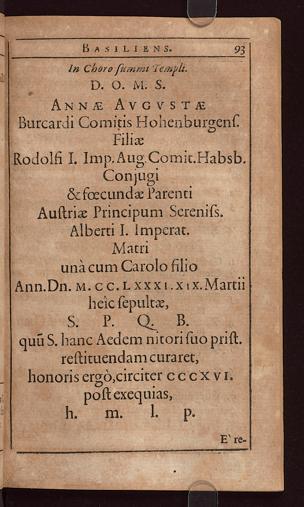 BASILIENS. 93
In Choro summi Templi.
D. O. M. S.
ANNÆ AVGVSTÆ
Burcardi Comitis Hohenburgens.
Filiæ
Rodolfi I. Imp. Aug. Comit. Habsb.
Conjugi
& fœcundæ Parenti
Austriæ Principum Sereniss.
Alberti I. Imperat.
Matri
unà cum Carolo filio
Ann. Dn. M. CC. LXXXI. XIX. Martii
heîc sepultæ,
S. P. Q. B.
quū S. hanc Aedem nitori suo prist.
restituendam curaret,
honoris ergò, circiter CCCXVI.
post exequias,
h. m. l. p.
E' re-